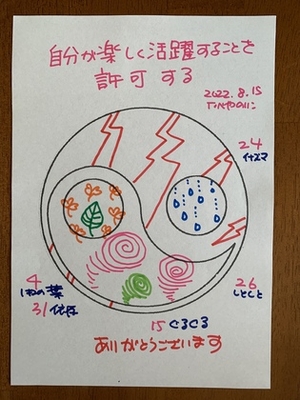 自分が楽しく活躍することを
許可する
2022.8.15
24
イナズマ
4
31
26
しとしと
15 ぐるぐる
ありがとうございます